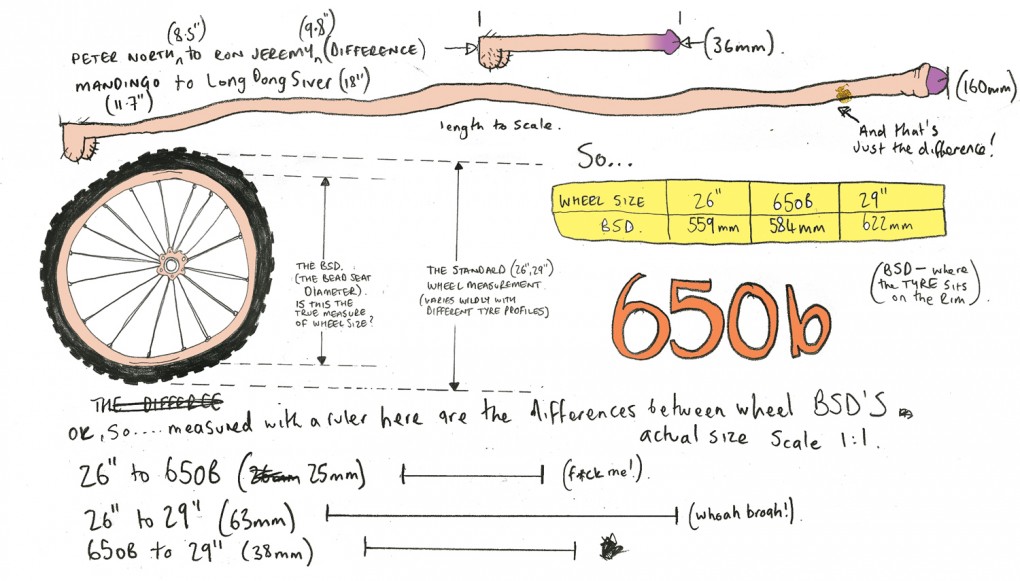 (8.5") (9.8")
PETER NORTH ^ to RON JEREMY ^ (DIFFERENCE)
(36mm).
MANDINGO to Long Dong Siver (18")
(11.7")
(160mm)
length to scale.
And that's
Just the difference!
So...
WHEEL SIZE 26" 650B 29"
BSD. 559mm 584mm 622mm
THE BSD.
(THE BEAD SEAT
DIAMETER).
IS THIS THE
TRUE MEASURE
OF WHEEL SIZE?
THE STANDARD (26", 29")
WHEEL MEASUREMENT.
(VARIES WILDLY WITH
DIFFERENT TYRE PROFILES)
650b
(BSD - where
the TYRE sits
on the Rim).
THE DIFFERCE
OK, So.... measured with a ruler here are the differences between wheel BSD'S
actual size Scale 1:1.
26" to 650B (26mm 25mm) (f*ck me!).
26" to 29" (63mm) (whoah brogh!).
650B to 29" (38mm)